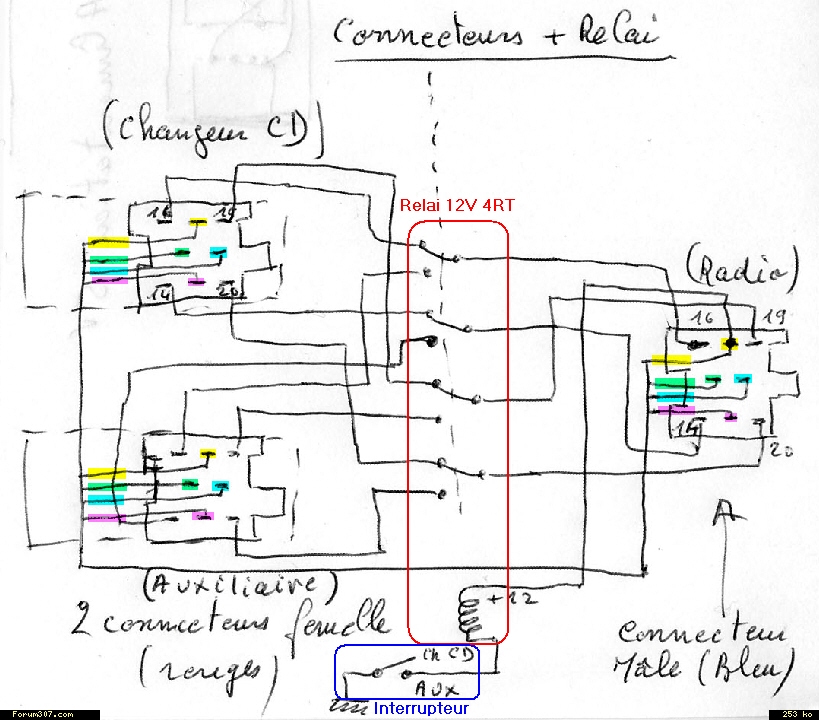 Connecteurs + Relai
(Changeur CD)
Relai 12V 4RT
16 19
(Radio)
16 19
14 20
14
20
+12
(Auxiliaire)
2 connecteurs femelle
(rouges)
Connecteur
Mâle (Bleu)
Ch CD
AUX
Interrupteur
Forum307.com
253 ko